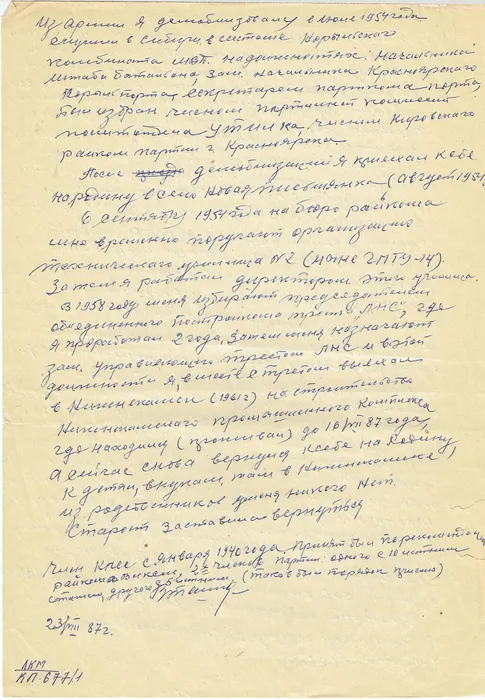 Из армии я демобилизован в июне 1954 года
служил в Сибири, в системе Норильского
комбината МВД. На должностях: Начальника
штаба батальона Зам. Начальника Красноярского
порта, секретарем парткома порта,
был избран членом партийной комиссии
политотдела членом Кировского
райкома партии г. Красноярска
После демобилизации я приехал к себе
на родину в село Новая Письмянка (август 1954)
В сентябре 1954 года на бюро райкома
мне временно поручают организацию
технического училища №2 (ныне ГПТУ-14).
Затем я работал директором этого училища.
В 1958 году меня избирают председателем
объединенного постройкома треста "ЛНС", где
я проработал 2 года, затем меня назначают
зам. управляющим трестом ЛНС и в этой
должности я, вместе с трестом выехал
в Нижнекамск (1961 г) на строительство
Нижнекамского промышленного комплекса
где находился (проживал) до 10/VIII 87 года,
А сейчас снова вернулся к себе на Родину
к детям, внукам, там в Нижнекамске,
из родственников у меня никого нет.
Старость заставила вернуться
Член КПСС с января 1940 года, принят был
райкомом членов партии одного с 10 летним
стажем, другого (таков был порядок приема)
23/VIII 87 г.
ЛКМ
КП-677/1